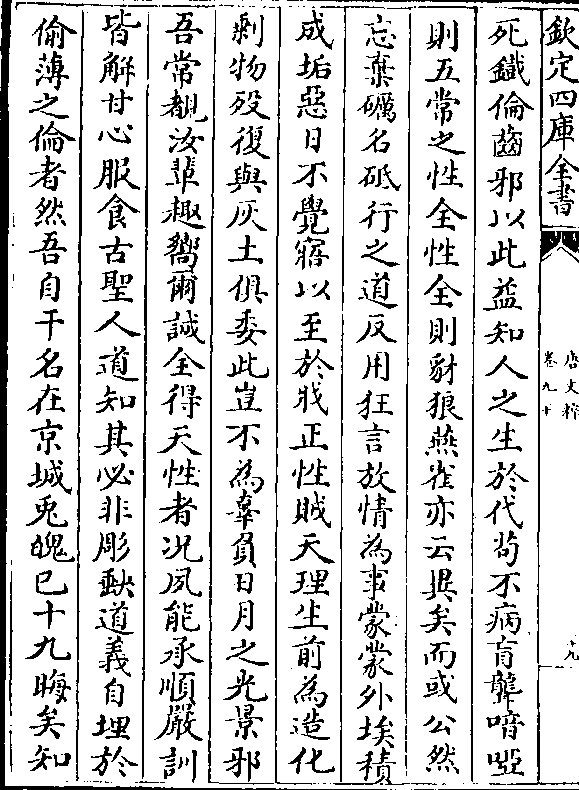 欽定四庫全書
唐文粹
卷九十
十九
死鐡倫齒邪以此益知人之生於代苟不病盲聾喑啞
則五常之性全性全則豺狼燕雀亦云異矣而或公然
忘棄礪名砥行之道反用狂言放情為事蒙蒙外埃積
成垢惡日不覺寤以至於戕正性賊天理生前為造化
剩物殁復與灰土俱委此豈不為辜負日月之光景邪
吾常覩汝輩趣嚮爾誠全得天性者况夙能承順嚴訓
皆解甘心服食古聖人道知其必非彫缺道義自埋於
偷薄之倫者然吾自干名在京城兎魄已十九晦矣知